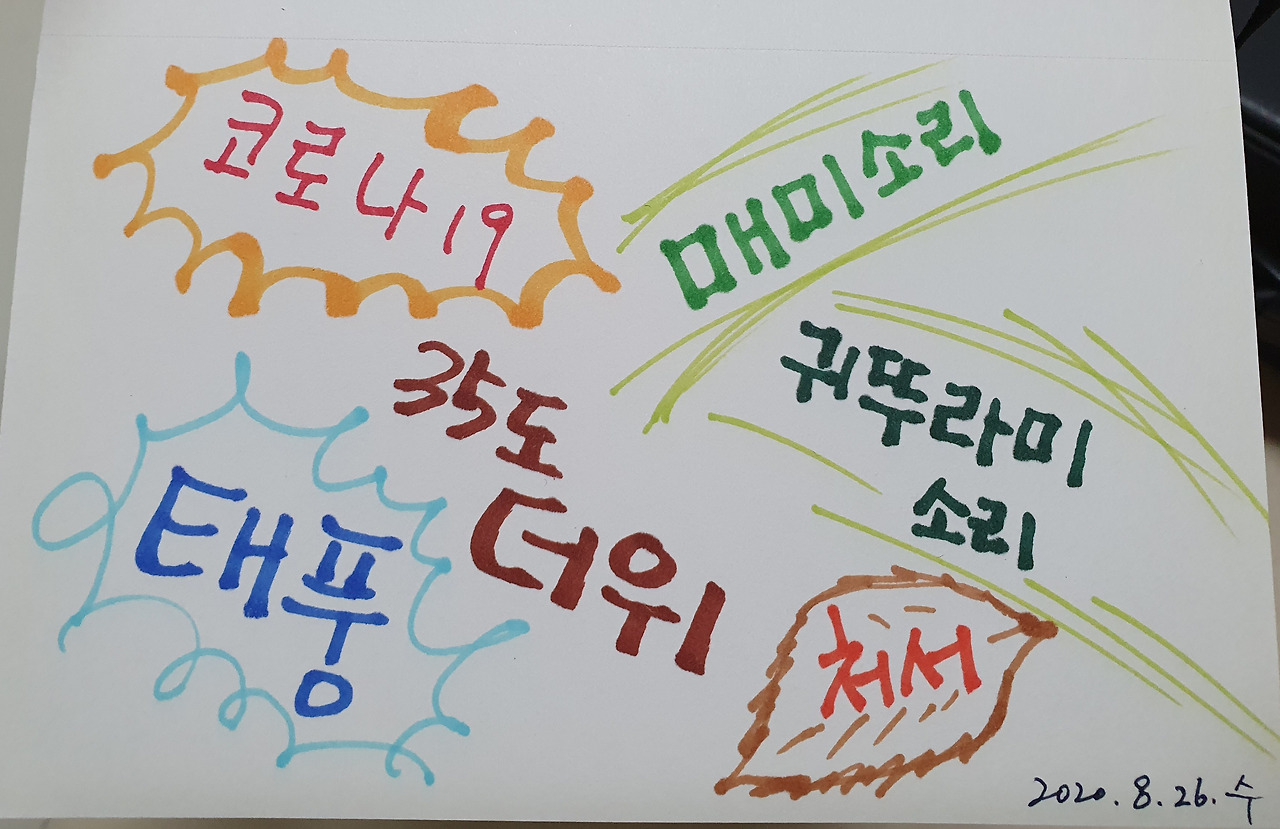 코로나19
매미소리
귀뚜라미
소리
35도
더위
태풍
처서
2020. 8. 26. 수